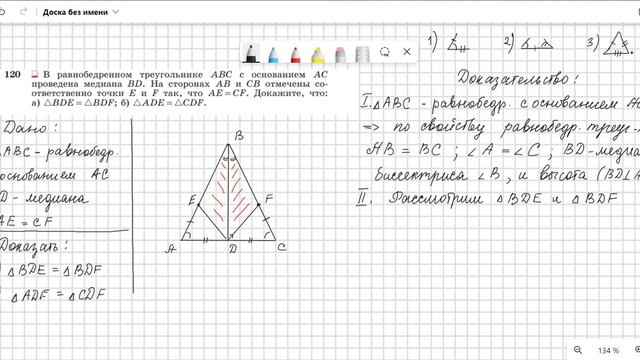 Доска без имени
120 В равнобедренном треугольнике ABC с основанием AC
проведена медиана BD. На сторонах AB и CB отмечены со-
ответственно точки E и F так, что AE = CF. Докажите, что:
а) △BDE = △BDF; б) △ADE = △CDF.
Дано:
△ABC - равнобедр.
основанием AC
BD - медиана
AE = CF
Доказать:
△BDE = △BDF
△ADE = △CDF
B
E
F
A
D
C
1)
2)
3)
Доказательство:
I. △ABC - равнобедр. с основанием
=> по свойству равнобедр. треуг.
AB = BC ; ∠A = ∠C ; BD - медиа
биссектриса ∠B, и высота (BD⊥A
II. Рассмотрим △BDE и △BDF
134 %